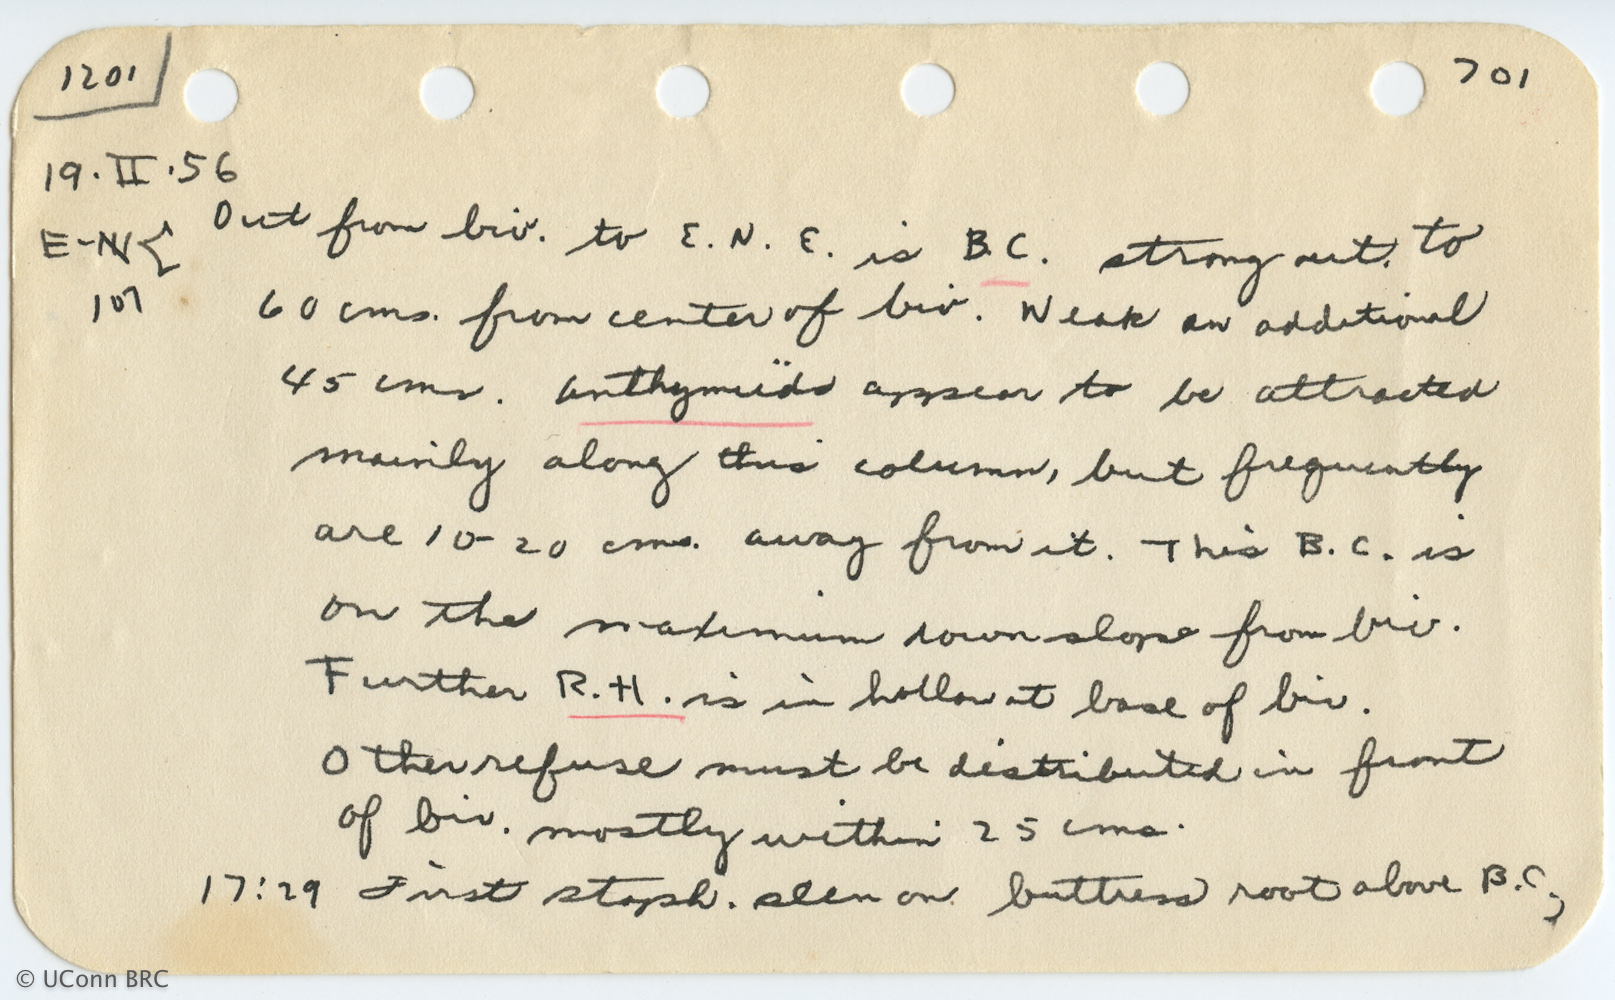 1201
701
19.II.56
E-N
107
Out from biv. to E.N.E. is B.C. strong out to
60 cms. from center of biv. Weak an additional
45 cms. appear to be attracted
mainly along this column, but frequently
are 10-20 cms. away from it. This B.C. is
on the maximum down slope from biv.
Further R.H. is in hollow at base of biv.
Other refuse must be distributed in front
of biv. mostly within 25 cms.
17:29 First staph. seen on buttress root above B.C.,
© UConn BRC